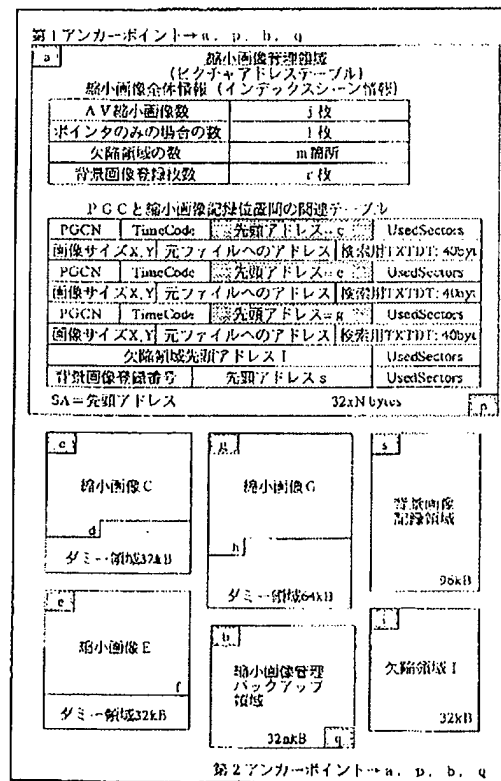 第1アンカーポイント→a, p, b, q
a
縮小画像管理領域
(ピクチャアドレステーブル)
縮小画像全体情報 (インデックスシーン情報)
AV縮小画像数 j枚
ポインタのみの場合の数 l枚
欠陥領域の数 m箇所
背景画像登録枚数 r枚
PGCと縮小画像記録位置間の関連テーブル
PGCN TimeCode 先頭アドレス=c UsedSectors
画像サイズX,Y 元ファイルへのアドレス 検索用TXTDT: 40byt
PGCN TimeCode 先頭アドレス=e UsedSectors
画像サイズX,Y 元ファイルへのアドレス 検索用TXTDT: 40byt
PGCN TimeCode 先頭アドレス=g UsedSectors
画像サイズX,Y 元ファイルへのアドレス 検索用TXTDT: 40byt
欠陥領域先頭アドレス I UsedSectors
背景画像登録番号 先頭アドレス s UsedSectors
SA=先頭アドレス 32xN bytes p
c
縮小画像C
d
ダミー領域32kB
g
縮小画像G
h
ダミー領域64kB
s
背景画像
記録領域
96kB
e
縮小画像E
f
ダミー領域32kB
b
縮小画像管理
バックアップ
領域
32nkB q
i
欠陥領域I
32kB
第2アンカーポイント→a, p, b, q